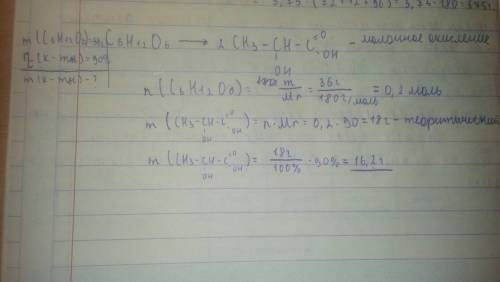 3,75 · (72 + 12 + 96) = 3,75 · 180 = 675г
m(C6H12O6) C6H12O6 → 2 CH3–CH–C=O –OH – молочное окисление
OH
η(к-ты) = 90%
m(к-ты) - ?
n(C6H12O6) = m/Mr = 36г/180г/моль = 0,2 моль
m(CH3–CH–C=O –OH) = n·Mr = 0,2 · 90 = 18г - теоритический
OH
m(CH3–CH–C=O –OH) = 18г/100% · 90% = 16,2г
OH